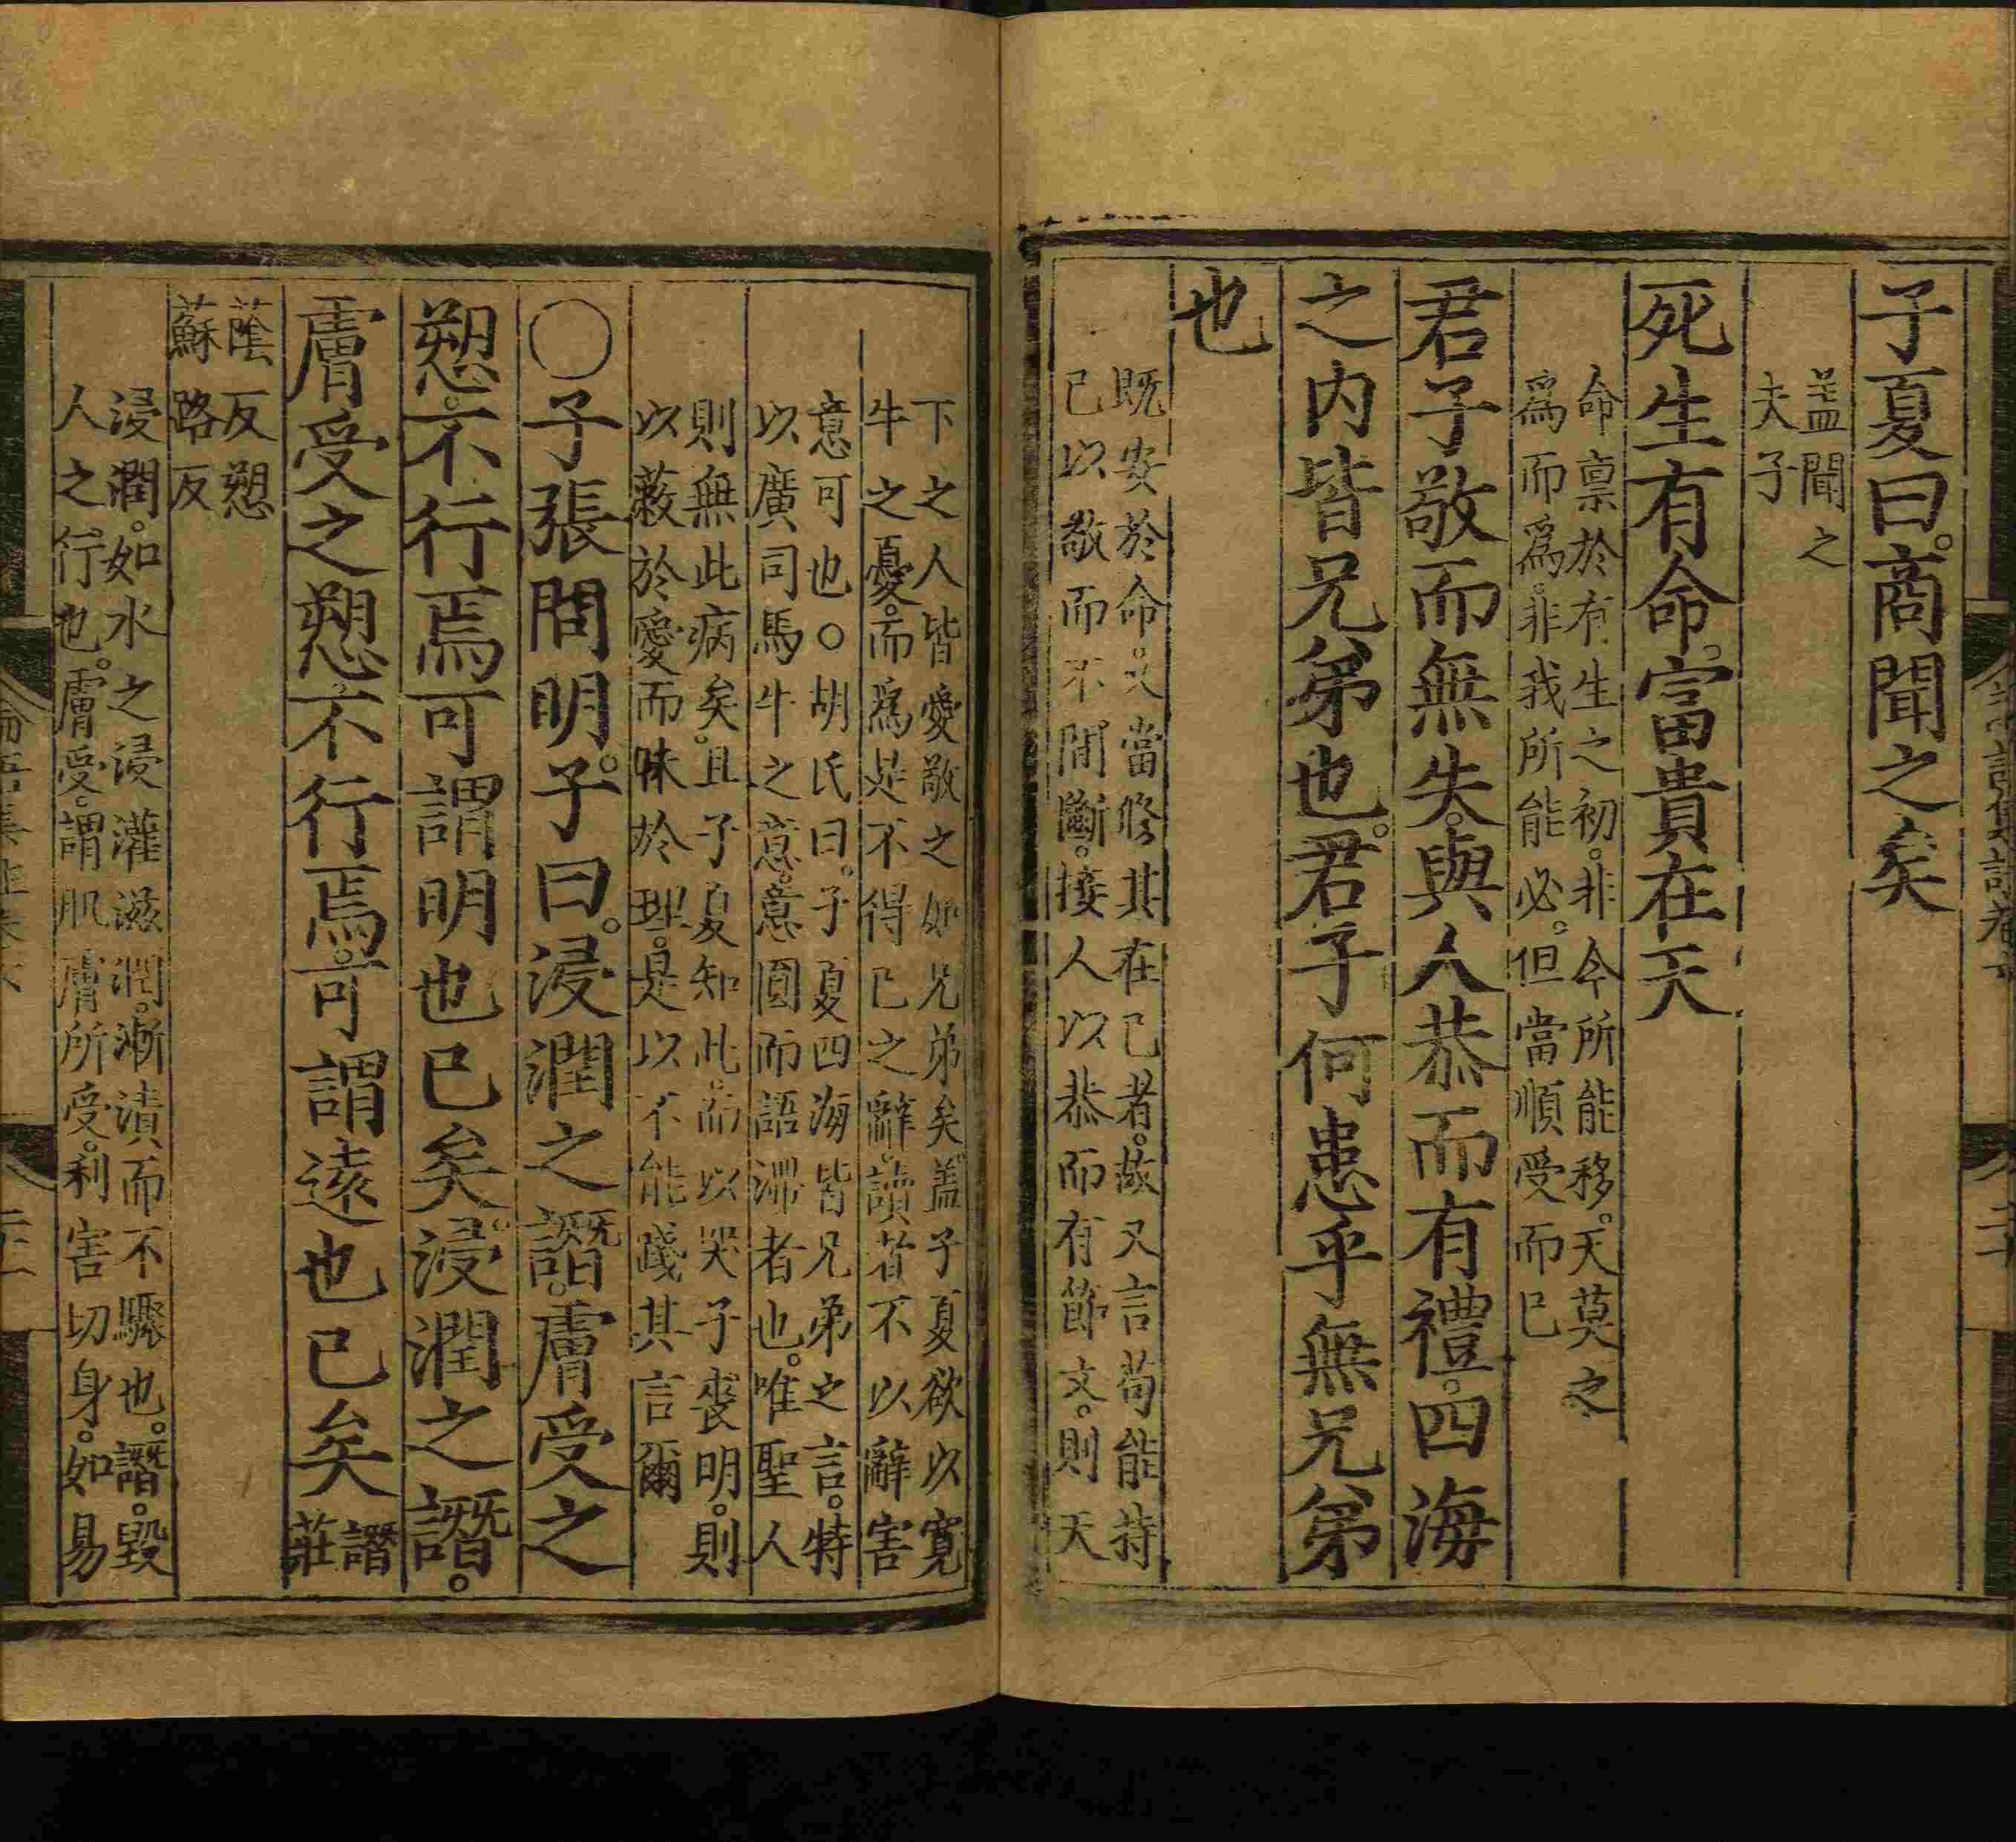 子夏曰。商聞之矣
蓋聞之
夫子
死生有命。富貴在天
命禀於有生之初。非今所能移。天莫之
爲而爲。非我所能必。但當順受而已
君子敬而無失。與人恭而有禮。四海
之内皆兄弟也。君子何患乎無兄弟
也
既安於命。又當修其在已者。故又言苟能持
已以敬而不間斷。接人以恭而有節文。則天
下之人皆愛敬之如兄弟矣。蓋子夏欲以寬
牛之憂。而爲是不得已之辭。讀者不以辭害
意可也。○胡氏曰。子夏四海皆兄弟之言。特
以廣司馬牛之意。意圓而語滯者也。唯聖人
則無此病矣。且子夏知此。而以哭子喪明。則
以蔽於愛而昧於理。是以不能踐其言爾
○子張問明。子曰。浸潤之譖。膚受之
愬。不行焉。可謂明也已矣。浸潤之譖。
膚受之愬。不行焉。可謂遠也已矣 譖
莊
蔭反愬
蘇路反
浸潤。如水之浸灌滋潤。漸漬而不驟也。譖。毀
人之行也。膚受。謂肌膚所受。利害切身。如易